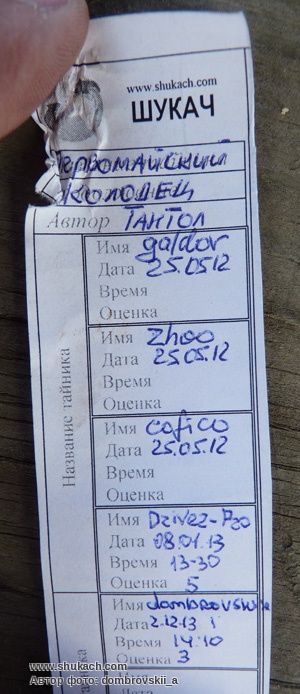 www.shukach.com
ШУКАЧ
Первомайский
Колодец
Автор ТАНТОЛ
Название тайника
Имя galdor
Дата 25.05.12
Время
Оценка
Имя Zhoo
Дата 25.05.12
Время
Оценка
Имя cofico
Дата 25.05.12
Время
Оценка
Имя
Дата 08.01.13
Время 13-30
Оценка 5
Имя dombrovskii_a
Дата 2.12.13
Время 14:10
Оценка 3
Имя
Дата
www.shukach.com
Автор фото: dombrovskii_a